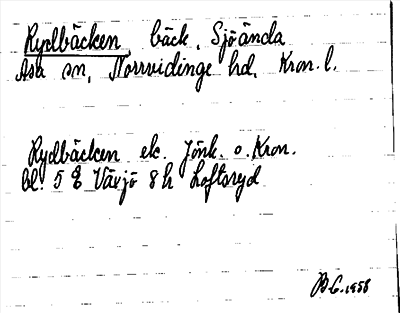 Rydbäcken, bäck, Sjöända
Asa sn, Norrvidinge hd, Kron. l.
Rydbäcken ek. Jönk. o. Kron.
bl. 5 Växjö 8h Loftsryd
1958